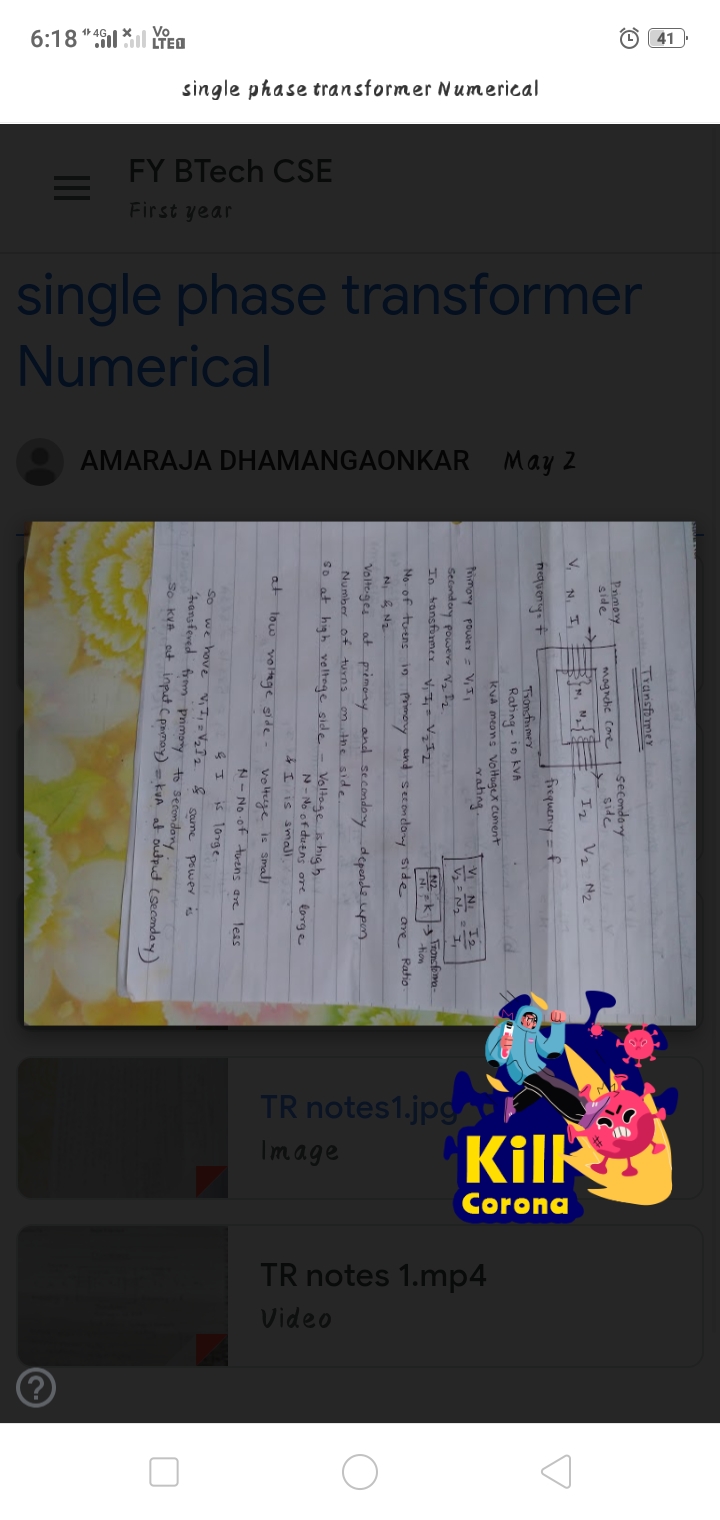 6:18 4G Vo LTE 41
single phase transformer Numerical
FY BTech CSE
First year
single phase transformer
Numerical
AMARAJA DHAMANGAONKAR May 2
Transformer
Primary side
magnetic core
secondary side
V1 N1 I1
N1 N2
I2 V2 N2
frequency = f
frequency = f
Transformer
Rating - in KVA
KVA means Voltage x current
rating
Primary power = V1I1
secondary power = V2I2
In transformer V1I1 = V2I2
V1/V2 = N1/N2 = I2/I1
N2/N1 = K → Transformation
Ratio
No. of turns in primary and secondary side are
N1 & N2
Voltages at primary and secondary depends upon
Number of turns on the side
so at high voltage side - Voltage is high
N - No of turns are large
& I is small
at low voltage side - Voltage is small
N - No. of turns are less
& I is large
So we have V1I1 = V2I2 & same power is
transfered from primary to secondary.
So KVA at input (primary) = KVA at output (seconday)
TR notes1.jpg
Image
Kill
Corona
TR notes 1.mp4
Video
?